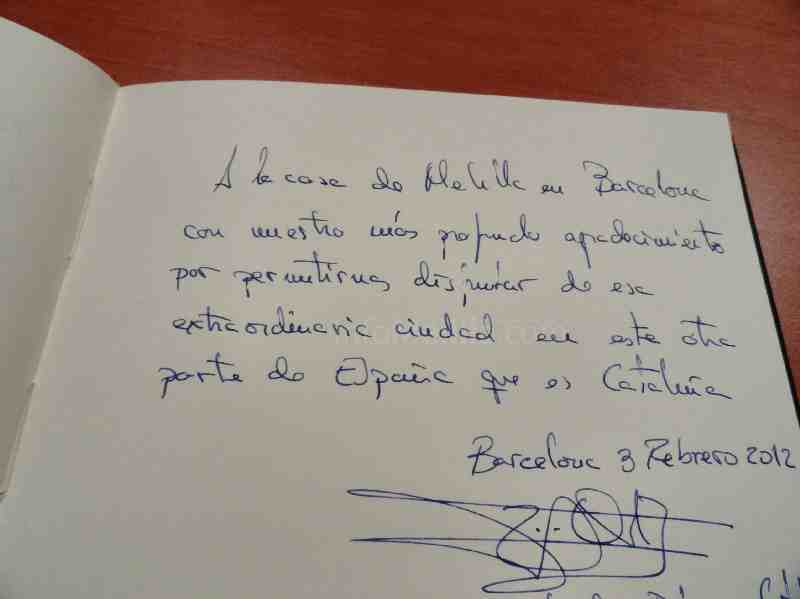 A la casa de Melilla en Barcelona
con nuestro más profundo agradecimiento
por permitirnos disfrutar de esa
extraordinaria ciudad en esta otra
parte de España que es Cataluña
Barcelona 3 Febrero 2012